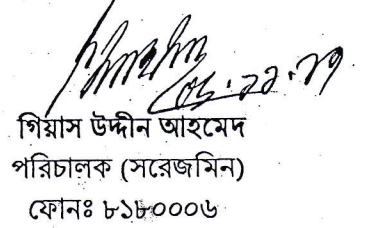 গিয়াস উদ্দীন আহমেদ
পরিচালক (সরেজমিন)
ফোনঃ ৮১৮০০০৬